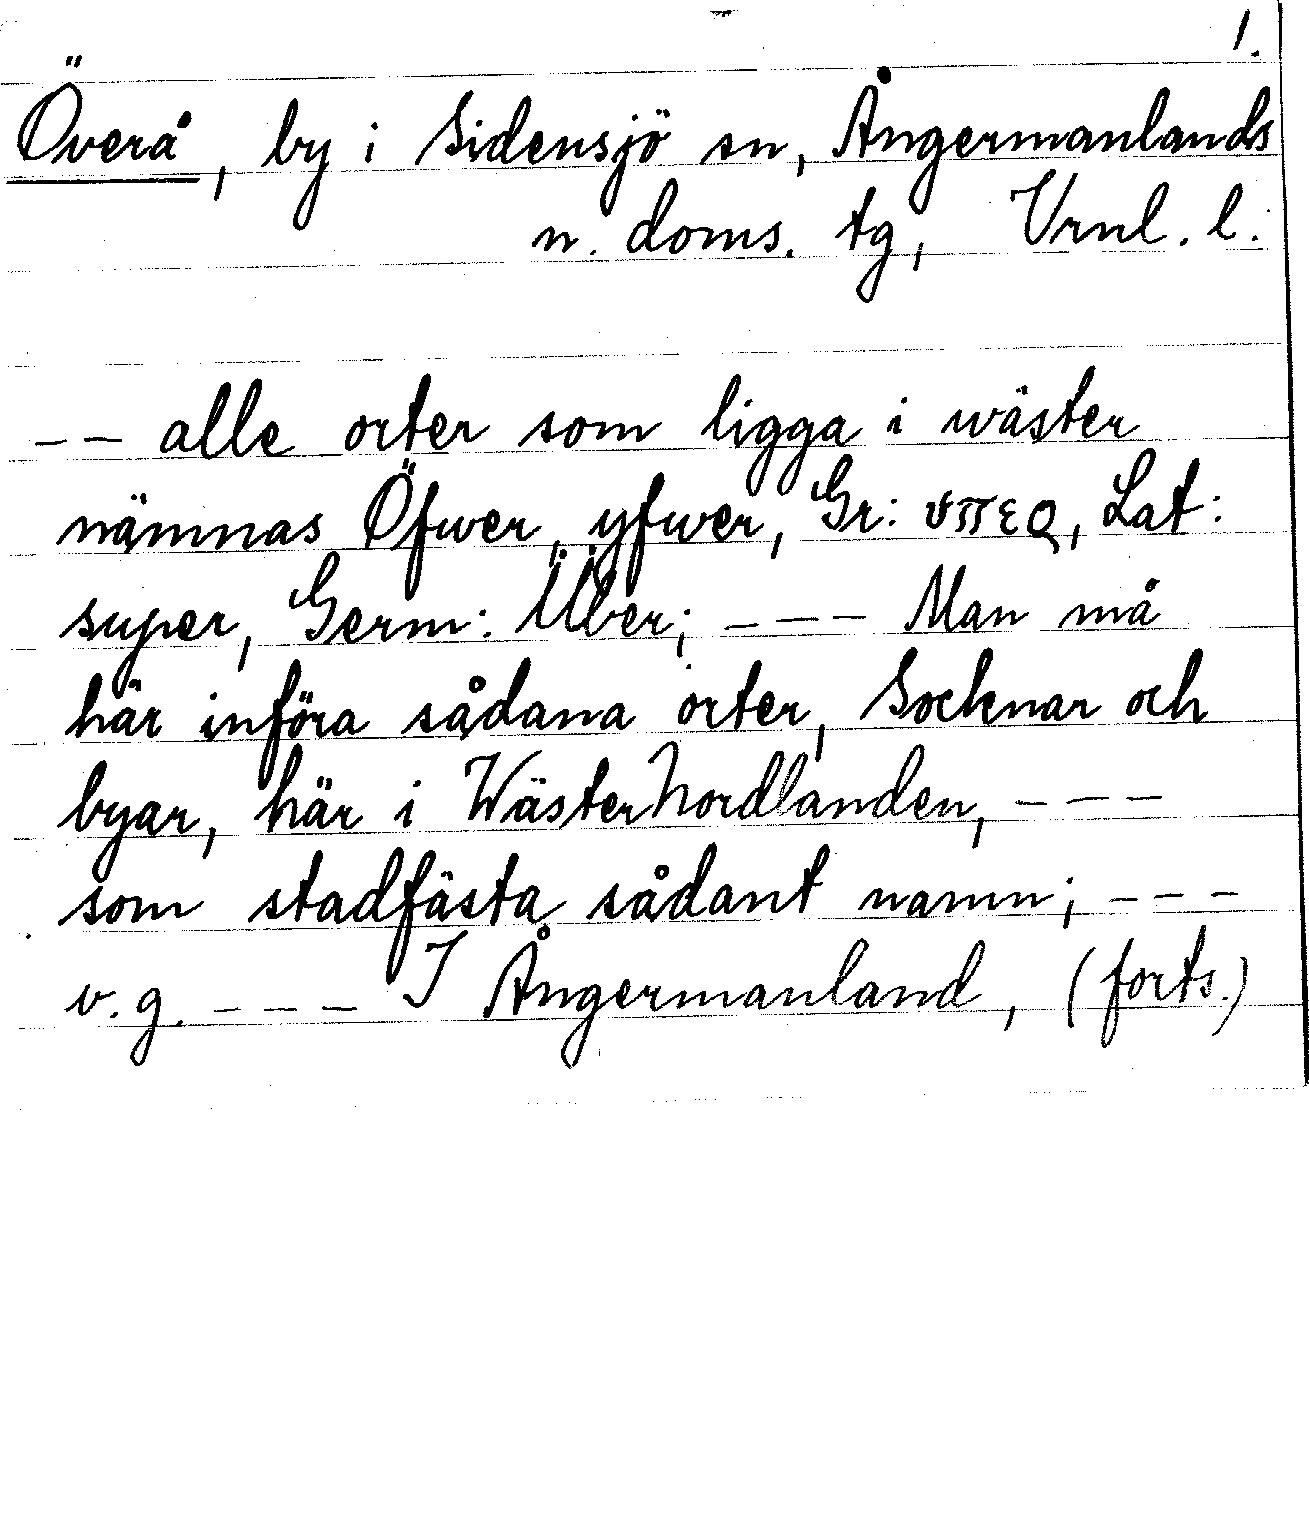 1.
Överå, by i Sidensjö sn, Ångermanlands
n. doms. tg, Vrnl. l.
-- alle orter som ligga i wäster
nämnas Öfwer, yfwer, Gr: υπερ, Lat:
super, Germ: Über; --- Man må
här införa sådana orter, Socknar och
byar, här i WästerNordlanden, ---
som stadfästa sådant namn; ---
v.g. --- I Ångermanland, (forts.)